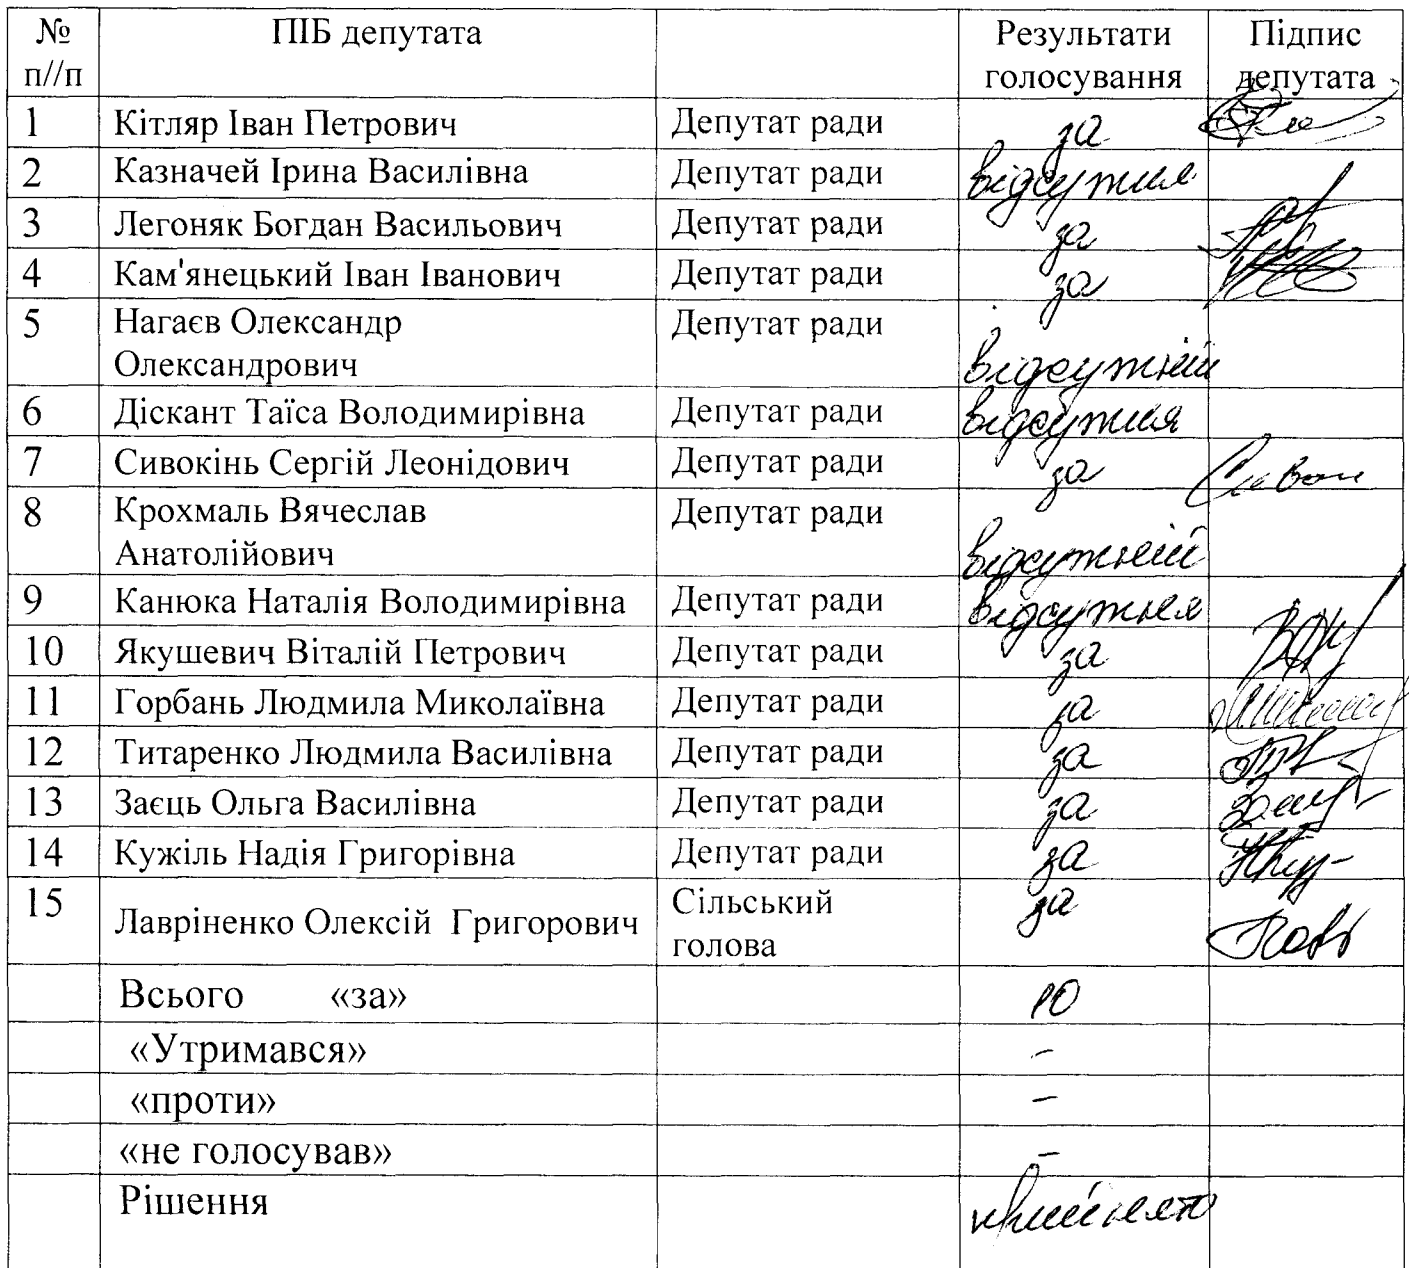 № п//п ПІБ депутата Результати голосування Підпис депутата
1 Кітляр Іван Петрович Депутат ради за
2 Казначей Ірина Василівна Депутат ради відсутня
3 Легоняк Богдан Васильович Депутат ради за
4 Кам'янецький Іван Іванович Депутат ради за
5 Нагаєв Олександр Депутат ради
Олександрович відсутній
6 Діскант Таїса Володимирівна Депутат ради відсутня
7 Сивокінь Сергій Леонідович Депутат ради за
8 Крохмаль Вячеслав Депутат ради
Анатолійович відсутній
9 Канюка Наталія Володимирівна Депутат ради відсутня
10 Якушевич Віталій Петрович Депутат ради за
11 Горбань Людмила Миколаївна Депутат ради за
12 Титаренко Людмила Василівна Депутат ради за
13 Заєць Ольга Василівна Депутат ради за
14 Кужіль Надія Григорівна Депутат ради за
15 Лавріненко Олексій Григорович Сільський голова за
Всього «за» 10
«Утримався» -
«проти» -
«не голосував» -
Рішення прийнято